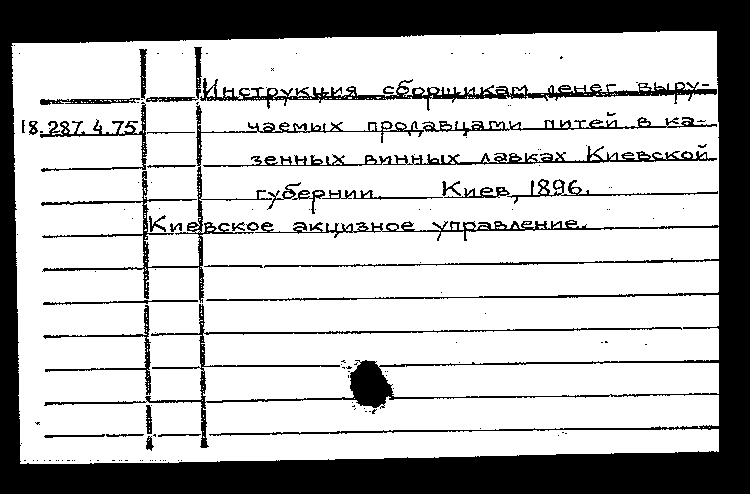 Инструкция сборщикам денег выру-
18.287.4.75. чаемых продавцами питей в ка-
зенных винных лавках Киевской
губернии. Киев, 1896.
Киевское акцизное управление.